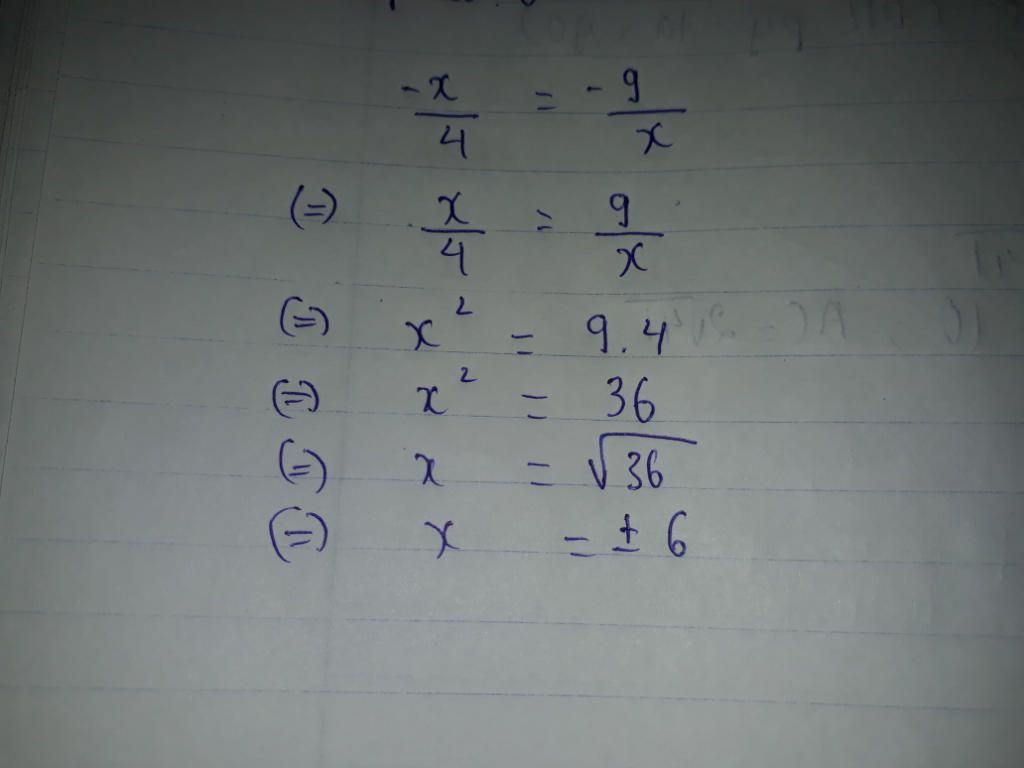 -x/4 = -9/x
(=) x/4 = 9/x
(=) x² = 9.4
(=) x² = 36
(=) x = √36
(=) x = ± 6